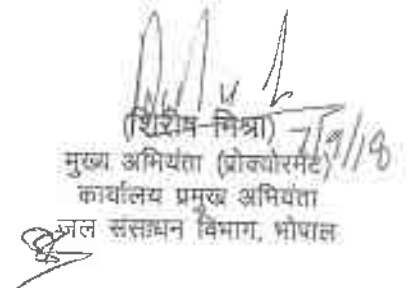 (शिरीष मिश्रा) 7/9/18
मुख्य अभियंता (प्रोक्योरमेंट)
कार्यालय प्रमुख अभियंता
जल संसाधन विभाग, भोपाल